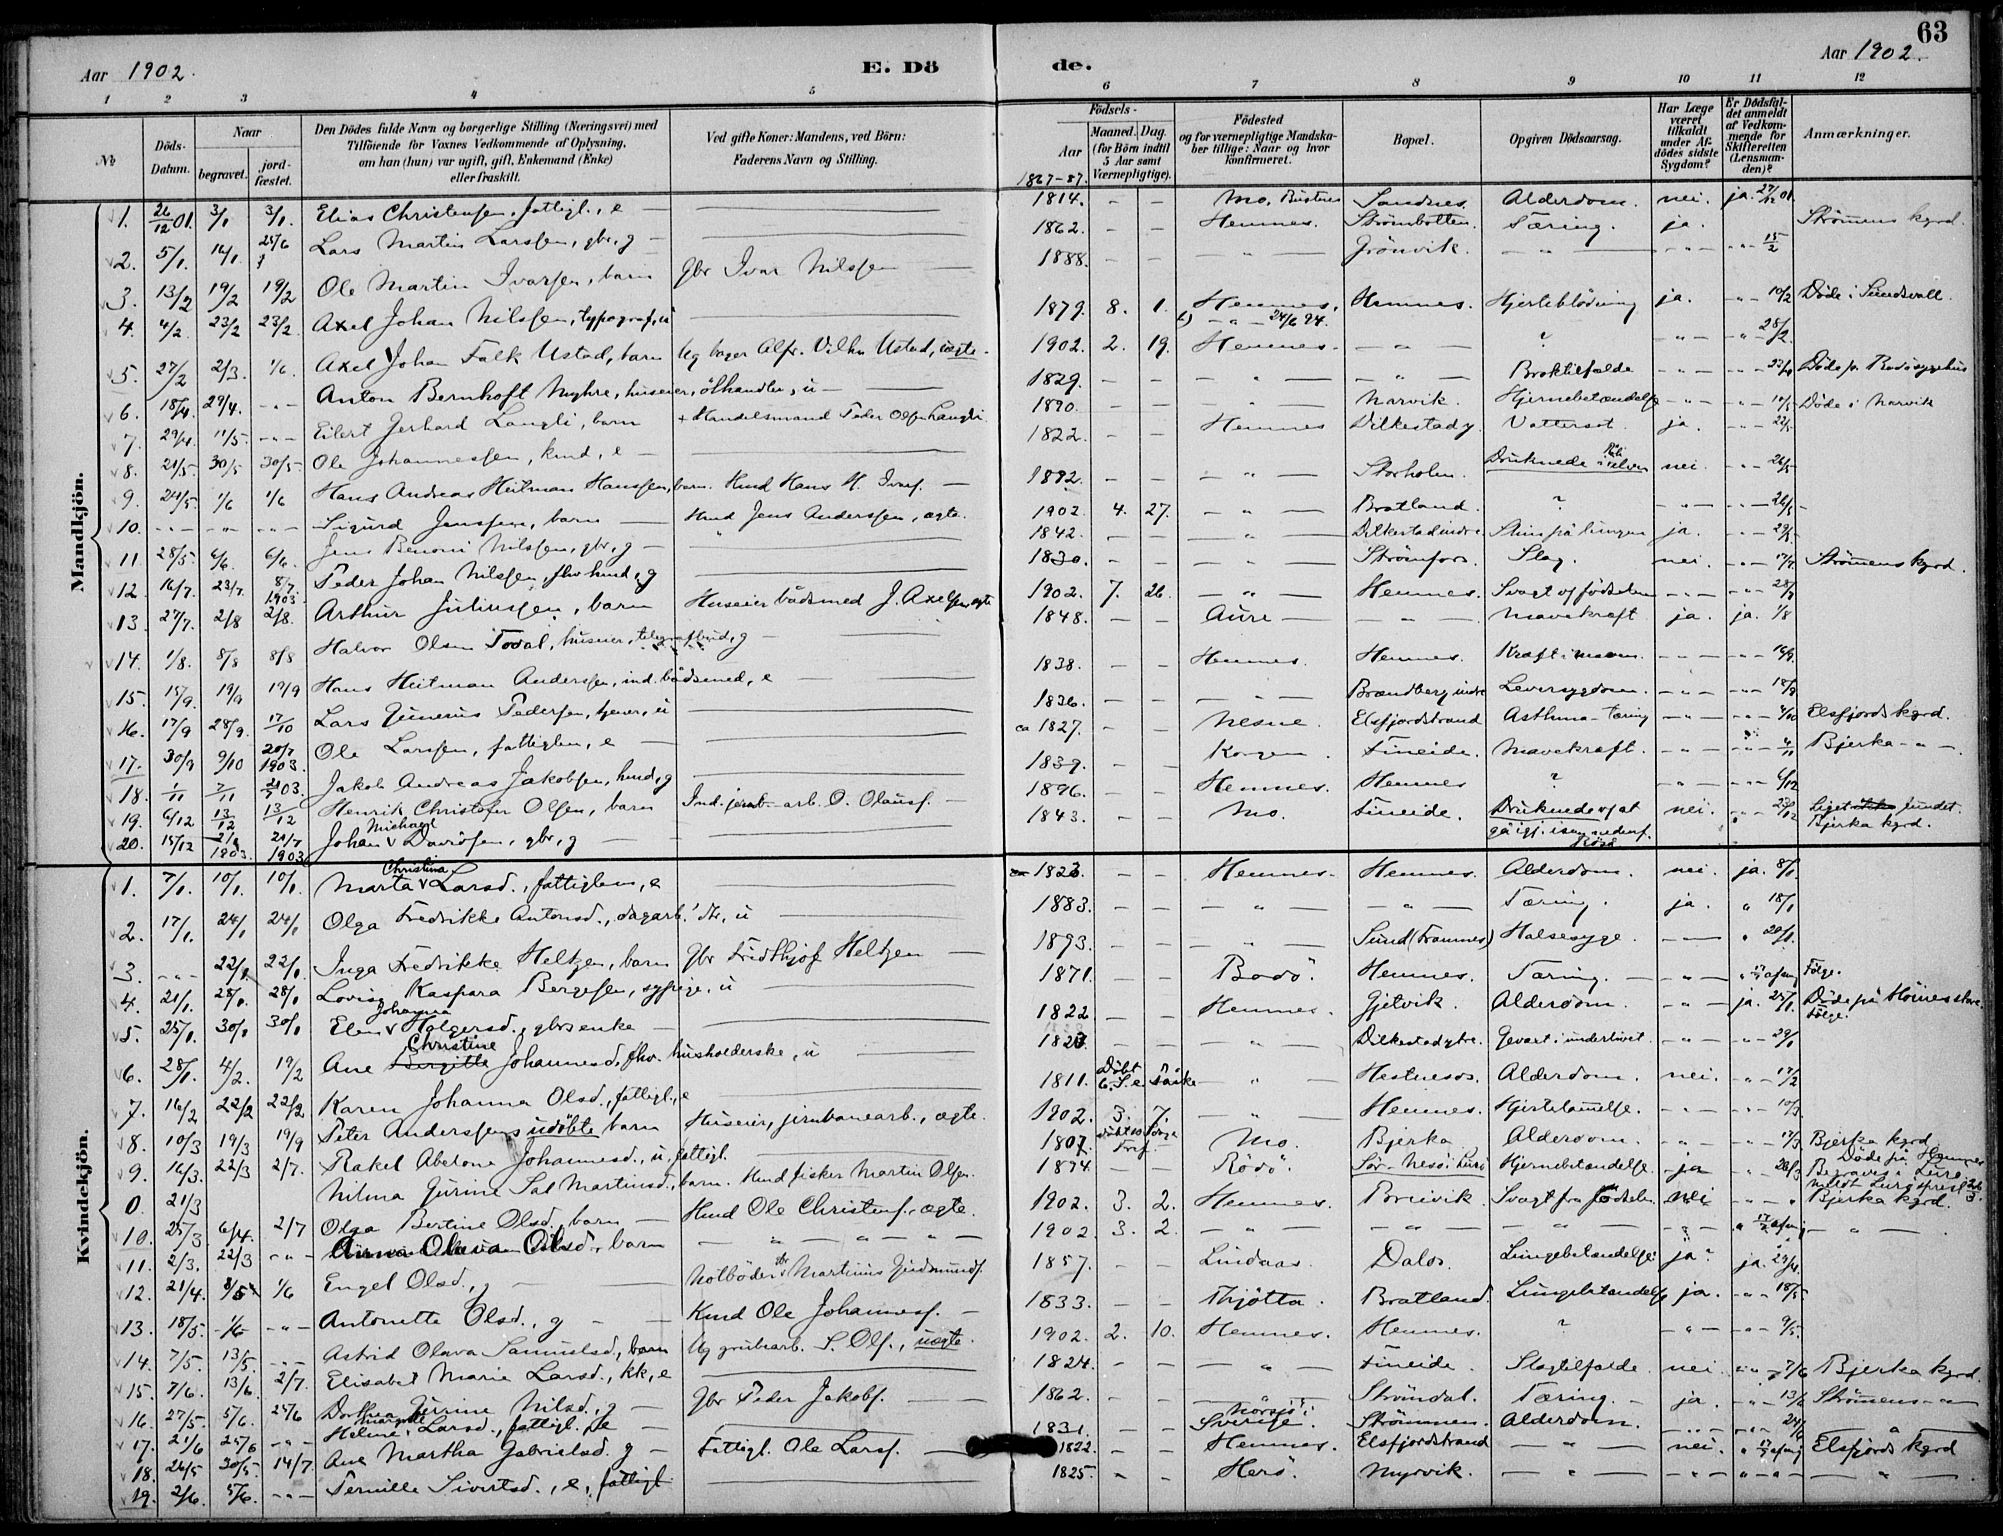 63
Aar 1902.
E. Dö
de.
Aar 1902.
1 2 3 4 5 6 7 8 9 10 11 12
No
Döds-Datum.
Naar
begravet.
jord-fæstet.
Den Dödes fulde Navn og borgerlige Stilling (Næringsvei) med
Tilföiende for Voxnes Vedkommende af Oplysning,
om han (hun) var ugift, gift, Enkemand (Enke)
eller fraskilt.
Ved gifte Koner: Mandens, ved Börn:
Faderens Navn og Stilling.
Födsels-
Aar
Maaned. Dag.
(for Börn indtil
5 Aar samt
Værnepligtige).
1867-87.
Födested
og for værnepligtige Mandska-
ber tillige: Naar og hvor
konfirmeret.
Bopæl.
Opgiven Dödsaarsag.
Har Læge
været
tilkaldt
under Af-
dödes sidste
Sygdom?
Er Dödsfal-
det anmeldt
af Vedkom-
mende for
Skifteretten
(Lensman-
den)?
Anmærkninger.
Mandkjön.
1. 26/12 01. 3/1 3/1. Elias Christensen, fattigl., e — 1814. - - Mo, Bustnes Sandnes. Alderdom. nei. ja. 27/12 01
2. 5/1. 14/1. 25/6 Lars Martin Larssen, gbr, g — 1862. - - Hemnes. Strömbotten. Tæring. ja. Strömens kgrd.
3. 13/2 19/2 19/2 Ole Martin Ivarsen, barn Gbr Ivar Nilssen — 1888. - - — " — Grönvik. — " — - " - - " - 15/2
4. 4/2. 23/2 23/2. Axel Johan Nilssen, typograf, u 1879. 8. 1. Hemnes. Hemnes. Hjerteblödning ja. - " - 10/2 Döde i Sundsvall.
5. 27/2 2/3. 1/6. Axel Johan Falk Ustad, barn Ug bager Alfr. Vilhm Ustad, uægte. 1902. 2. 19. Hemnes. — " — ? - " - - " - 28/2
6. 18/4. 29/4. - " - Anton Bernhoft Myhre, huseier, ölhandler, u — 1829. - - — " — — " — Broktilfælde - " - Döde på Bodö sygehus
7. 29/4. 11/5. - " - Eilert Jerhard Langli, barn + Handelsmand Peder Olsen Langli 1890. - - " Narvik. Hjernebetændelse - " - Döde i Narvik
8. 21/5. 30/5 30/5- Ole Johannessen, kmd, e — 1822. - - Hemnes Dilkestad y. Vattersot. ja. - " - 22/5
9. 24/5. 1/6 1/6 Hans Andreas Heitman Hanssen, barn. Kmd Hans H. Ivers. — 1892. - - — " — Storholm. Druknede i elven nei. - " - 26/5
10. - " - - " - - " - Sigurd Jenssen, barn — Kmd Jens Anderssen, ægte. 1902. 4. 27. — " — Bratland. ? - " - - " - 26/5
11. 28/5 6/6. 6/6. Jens Benoni Nilssen, gbr, g — 1842. - - — " — Dilkestad indre Sting på lungen ja. - " - 29/5
12. 16/7. 23/7. 8/7 1903 Peder Johan Nilssen, fhv kmd, g 1830. - - " Strömfors. Slag. nei. - " - 17/7 Strömens kgrd.
13. 27/7. 2/8 2/8. Arthur Juliussen, barn Huseier bådsmed J. Axelsen ægte 1902. 7. 26. — " — Hemnes. Svagt af födselen - " - - " - 28/7
14. 1/8. 8/8 8/8 Halvor Olsen Todal, huseier, telegrafbud, g — 1848. - - Aure — — " — Mavekræft ja. ja. 1/8
15. 15/9. 19/9 19/9 Hans Heitman Anderssen, ind. bådsmed, e — 1838. - - Hemnes. Hemnes. Kræft i maven. - " - - " - 16/9
16. 17/9 28/9. 17/10 Lars Junerius Pedersen, tjener, u 1836. - - — " — Brændberg indre Leversygdom. - " - - " - 18/9
17. 30/9 9/10 20/7 1903. Ole Larssen, fattiglem, e — ca 1827. - - Nesne. Elsfjordstrand Asthma-Tæring - " - - " - 4/10 Elsfjords kgrd.
18. 1/11 7/11 21/7 03. Jakob Andreas Jakobsen, kmd, g 1839. - - Korgen Fineide. Mavekræft. - " - - " - 4/11 Bjerka - " -
19. 6/12 13/12 13/12 Henrik Christofer Olsen, barn Ind. jernb-arb. O. Olausf. — 1896. - - Hemnes. Hemnes ? - " - - " - 6/12
20. 15/12 21/7 1903. 21/7 1903 Johan Michael Davidsen, gbr, g — 1843. - - Mo. Fineide. Druknede v at gå igj. isen nedenf. Röså nei. - " - 23/12 Liget ikke fundet. Bjerka kgrd.
Kvindekjön.
1. 7/1. 10/1. 10/1. Marta Christina Larsd., fattiglem, e 1823. - - Hemnes. Hemnes. Alderdom. nei. ja. 8/1.
2. 17/1. 24/1 24/1 Olga Fredrikke Antonsd., dagarb.' dtr, u — 1883. - - — " — — " — Tæring. ja. " 18/1
3. - " - 22/1 22/1. Inga Fredrikke Heltzen, barn Gbr Fridthjof Heltzen — 1893. - - — " — Sund (Framnes) Halsesyge. - " - " 20/1.
4. 21/1. 28/1. 28/1 Lovise Kaspara Bergesen, sypige, u — 1871. - - Bodö. Hemnes. Tæring. — - " - Fölge.
5. 25/1. 30/1 30/1 Elen Johanna Holgersd., gbrs enke — 1822. - - Hemnes. Gjetvik. Alderdom. - " - ja. 25/1. Döde på Hemnes Fölge.
6. 28/1. 4/2. 19/2 Ane Bergitte Christine Johannesd, fhv. husholderske, u — 1823. - - — " — Dilkestad ytre. Gevæxt i underlivet. - " - - " - 29/1
7. 16/2 22/2 22/2 Karen Johanna Olsd., fattigl., e 1811. Döbt 6. S. e. Påske — " — Hestnesos. Alderdom. nei. - " - 17/2
8. 10/3 19/3 19/3 Peter Anderssens udöbte barn Huseier, jernbanearb., ægte. 1902. 3. 7. — " — Hemnes. Hjertelamelse. - " - - " - 10/3
9. 16/3. 22/3 2/7. Rakel Abelone Johannesd., u, fattigl. 1807. Mo. Bjerka Alderdom. - " - - " - 17/3 Bjerka kgrd
0. 21/3 Nilma Jörine Sal Martinsd., barn. Kmd fisker Martin Olsen. 1894. - Rödö. Sör-Nesö i Lurö Hjernebetændelse. ja - " - Döde på Hemnes Begraves i Lurö
10. 25/3 6/4. 2/7 Olga Bertine Olsd., barn — Kmd Ole Christens. ægte. 1902. 3. 2. Hemnes. Breivik. Svagt fra födselen nei - " - Bjerka kgrd.
11. 2/3. 22/3 - " - Anna Olava Olsd., barn — " — " — " — 1902. 3. 2. — " — — " — — " — - " - — " —
12. 21/4. 8/5 1/6 Engel Olsd., g — Notböder Martinus Gudmunds. 1857. - - Lindaas. Dalos. Lungebetændelse. ja ja. 29/4.
13. 18/5. 1/6- - " - Antonette Olsd., g — Kmd Ole Johannesf. — 1833. - - Thjötta. Bratland. Lungebetændelse ja. - " - 18/5.
14. 7/5. 13/5. - " - Astrid Olava Samuelsd., barn Ug grubearb. S. Ols., uægte. 1902. 2. 10. Hemnes. Hemnes. ? - " - - " - 9/5.
15. 7/6. 13/6. 2/7. Elisabet Marie Larsd., kk, e 1824. - - — " — Fineide. Slagtilfælde nei. - " - 7/6 Bjerka kgrd.
16. 27/5. 5/6. 25/6 Dorthea Jörine Nilsd., g — Gbr Peder Jakobs. — 1862. - - — " — Ströndal. Tæring. — ja. - " - 13/6 Strömens - " -
17. 21/6 25/6 - " - Helene Margrete Larsd., fattigl., e — 1831. Norsjö i Sverige. Strömmen. Alderdom. - " - - " - 24/6 — " —
18. 26/5 30/5. 14/7. Ane Martha Gabrielsd. g — Fattigl. Ole Larsf. — 1822. - Hemnes. Elsfjordstrand — " — nei. Elsfjords kgrd
19. 2/6. 5/6. - " - Pernille Sivertsd., e, fattigl. 1825. - - Herö. Myrvik. — " — - " - - " - — " —